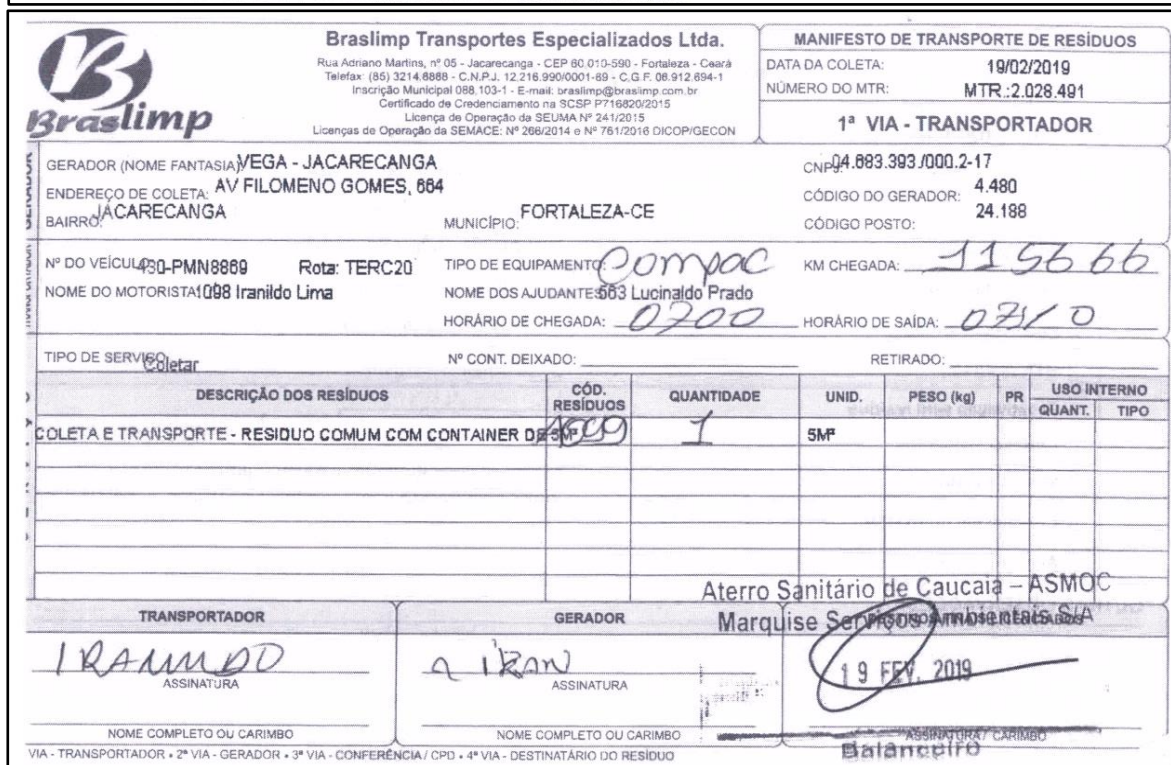 Braslimp
Braslimp Transportes Especializados Ltda.
Rua Adriano Martins, nº 05 - Jacarecanga - CEP 60.010-590 - Fortaleza - Ceará
Telefax: (85) 3214.8888 - C.N.P.J. 12.216.990/0001-89 - C.G.F. 06.912.694-1
Inscrição Municipal 088.103-1 - E-mail: braslimp@braslimp.com.br
Certificado de Credenciamento na SCSP P716820/2015
Licença de Operação da SEUMA Nº 241/2015
Licenças de Operação da SEMACE: Nº 266/2014 e Nº 761/2016 DICOP/GECON
MANIFESTO DE TRANSPORTE DE RESÍDUOS
DATA DA COLETA: 19/02/2019
NÚMERO DO MTR: MTR.:2.028.491
1ª VIA - TRANSPORTADOR
GERADOR (NOME FANTASIA) VEGA - JACARECANGA CNPJ: 04.683.393./000.2-17
ENDEREÇO DE COLETA: AV FILOMENO GOMES, 664 CÓDIGO DO GERADOR: 4.480
BAIRRO: JACARECANGA MUNICÍPIO: FORTALEZA-CE CÓDIGO POSTO: 24.188
Nº DO VEÍCULO: 430-PMN8869 Rota: TERC20 TIPO DE EQUIPAMENTO: Compac KM CHEGADA: 115666
NOME DO MOTORISTA: 1098 Iranildo Lima NOME DOS AJUDANTES: 563 Lucinaldo Prado
HORÁRIO DE CHEGADA: 0700 HORÁRIO DE SAÍDA: 0710
TIPO DE SERVIÇO: Coletar Nº CONT. DEIXADO: RETIRADO:
DESCRIÇÃO DOS RESÍDUOS CÓD. RESÍDUOS QUANTIDADE UNID. PESO (kg) PR USO INTERNO QUANT. TIPO
COLETA E TRANSPORTE - RESIDUO COMUM COM CONTAINER DE 5Mª 1 5Mª
Aterro Sanitário de Caucaia – ASMOC
Marquise Serviços Ambientais S/A
TRANSPORTADOR GERADOR
19 FEV. 2019
ASSINATURA ASSINATURA ASSINATURA / CARIMBO
NOME COMPLETO OU CARIMBO NOME COMPLETO OU CARIMBO
Balanceiro
VIA - TRANSPORTADOR • 2ª VIA - GERADOR • 3ª VIA - CONFERÊNCIA / CPD • 4ª VIA - DESTINATÁRIO DO RESÍDUO